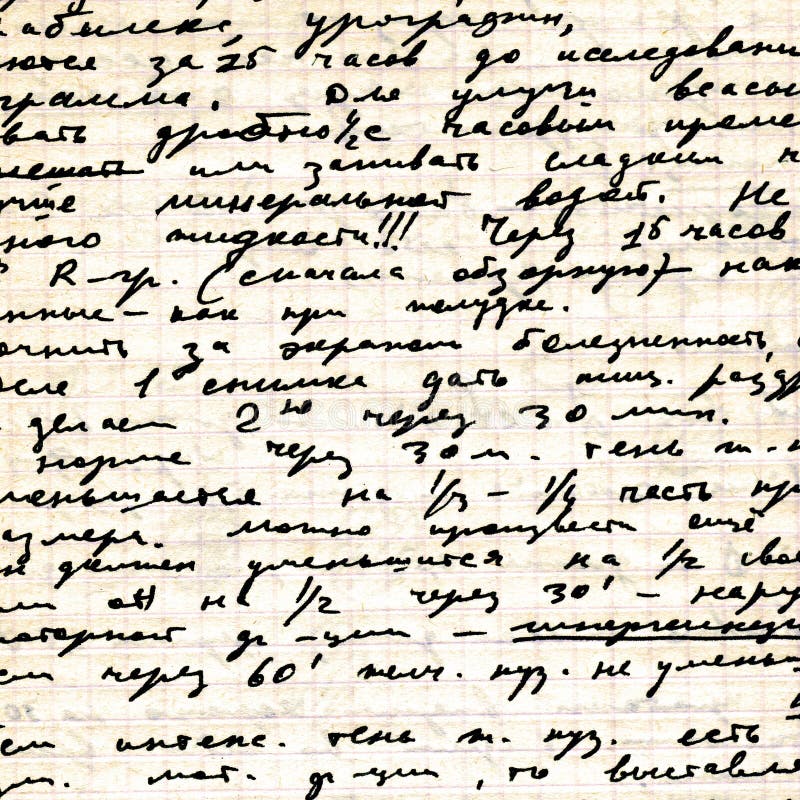 урографин,
ются за 15 часов до исследовани
грамма. Для улучш всасы
вать дробно ½ с часовым проме
мешать или запивать сладким ч
учше минеральной водой. Не
ного жидкости!!! Через 15 часов
R-гр. (сначала обзорную) нак
нные – как при желудке.
очнить за экраном болезненность,
осле 1 снимка дать пищ. раздр
делаем 2ой через 30 мин.
норме через 30 м. тень ж.
меньшается на 1/3 – 1/4 часть пр
азмера. Можно произвести ещё
н должен уменьшится на 1/2 сво
ли на 1/2 через 30' – нару
моторной ф-ции –
ем через 60' желч. пуз. не умень
ем интенс. тень ж. пуз. есть
ци. мот. ф-ции, то выставля